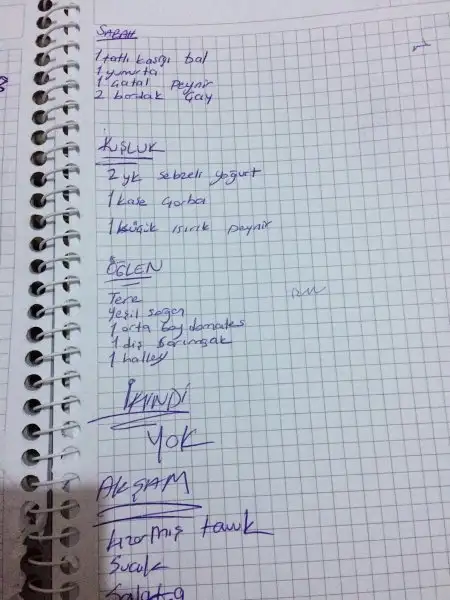 SABAH
1 tatlı kaşığı bal
1 yumurta
1 çatal peynir
2 bardak çay
KUŞLUK
2 yk sebzeli yoğurt
1 kase çorba
1 küçük ısırık peynir
ÖĞLEN
Tere
Yeşil soğan
1 orta boy domates
1 diş sarımsak
1 halley
İKİNDİ
YOK
AKŞAM
kızarmış tavuk
Sucuk
Salata